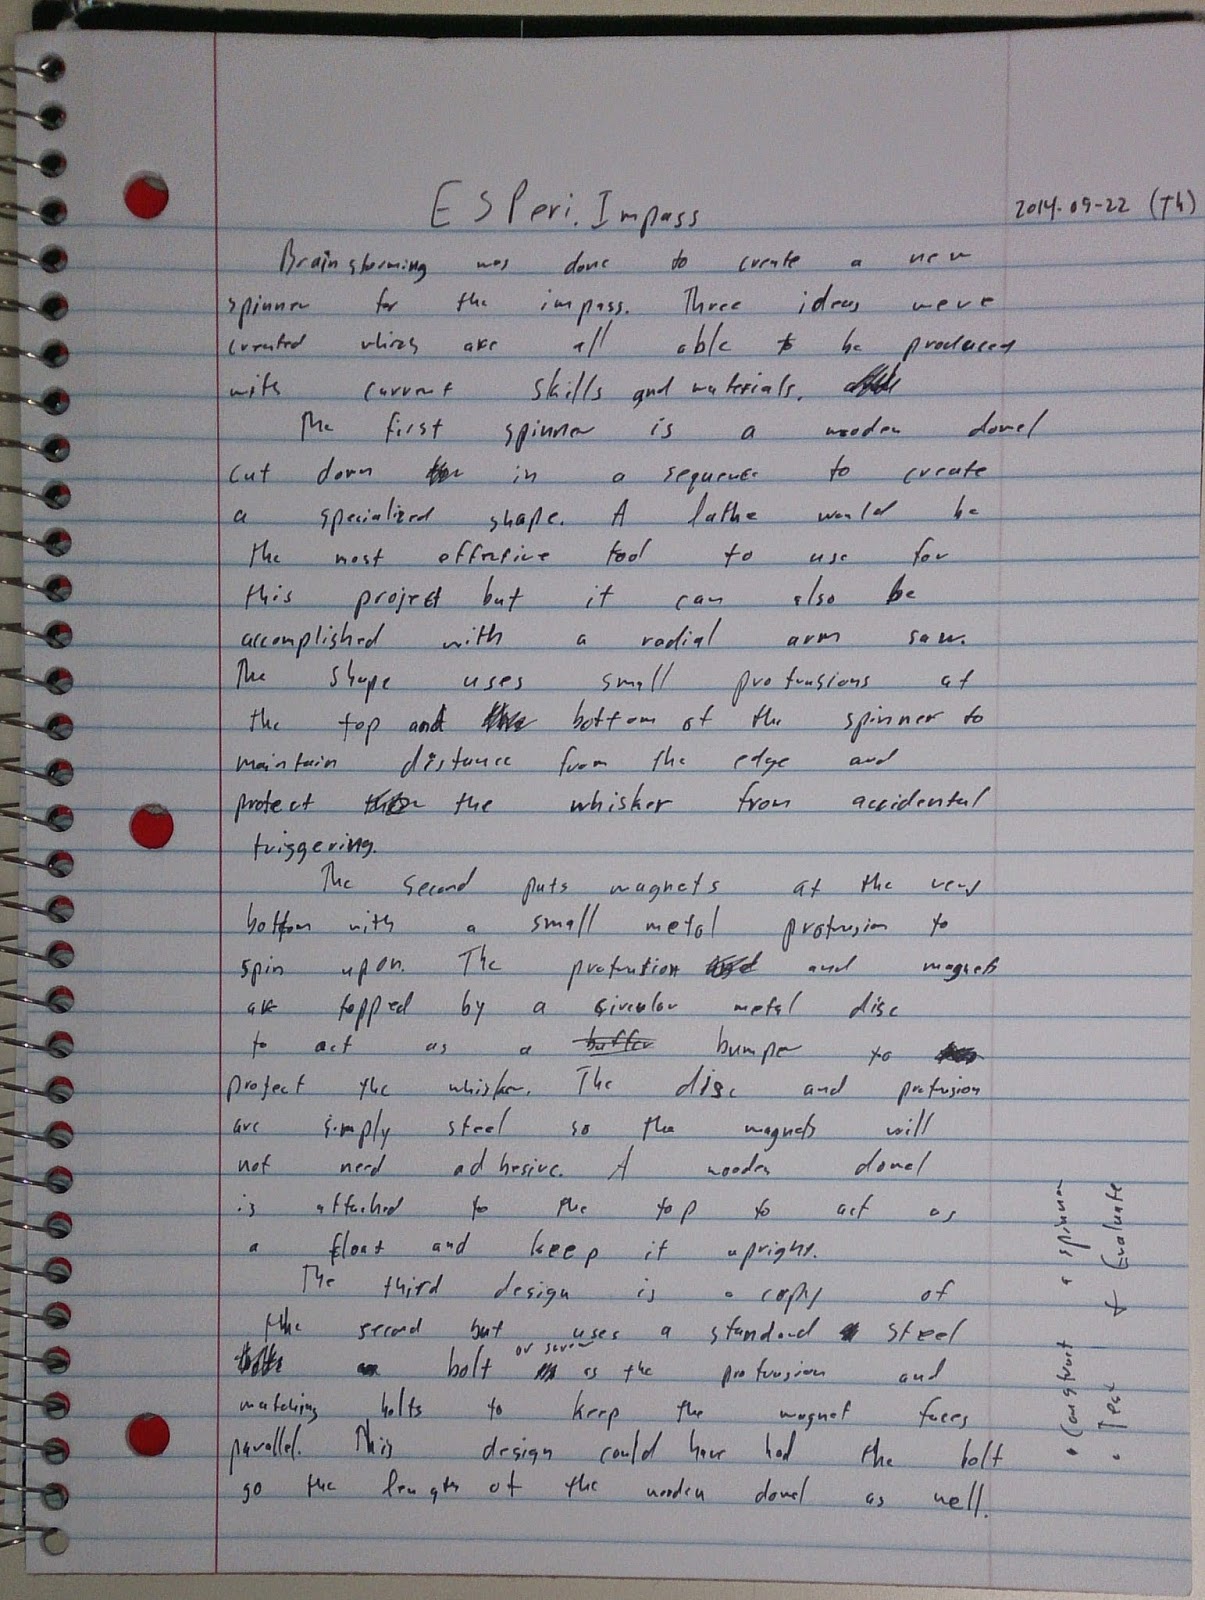 ESPeri. Impass
2014-09-22 (Th)
Brainstorming was done to create a new
spinner for the impass. Three ideas were
created which are all able to be produced
with current skills and materials.
The first spinner is a wooden dowel
cut down in a sequence to create
a specialized shape. A lathe would be
the most effective tool to use for
this project but it can also be
accomplished with a radial arm saw.
The shape uses small protrusions at
the top and bottom of the spinner to
maintain distance from the edge and
protect the whisker from accidental
triggering.
The second puts magnets at the very
bottom with a small metal protrusion to
spin upon. The protrution and magnets
are topped by a circular metal disc
to act as a buffer bumper to
protect the whisker. The disc and protrusion
are simply steel so the magnets will
not need adhesive. A wooden dowel
is attached to the top to act as
a float and keep it upright.
The third design is a copy of
the second but uses a standard steel
bolt or screw as the protrusion and
matching bolts to keep the magnet faces
parallel. This design could have had the bolt
go the length of the wooden dowel as well.
• Construct a spinner
• Test & Evaluate